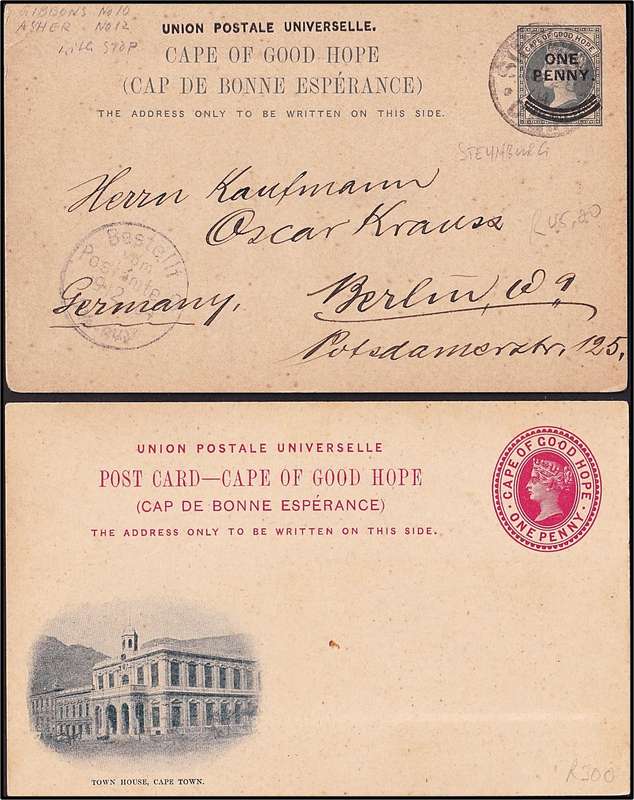 GIBBONS No 10
ASHER No 12
with STOP
UNION POSTALE UNIVERSELLE.
CAPE OF GOOD HOPE
(CAP DE BONNE ESPÉRANCE)
THE ADDRESS ONLY TO BE WRITTEN ON THIS SIDE.
CAPE OF GOOD HOPE
ONE
PENNY.
STEYNBURG
Herrn Kaufmann
Oscar Krauss
R45,00
Bestellt
vom
Postamte
9
Germany,
Berlin, W 9
Potsdamerstr. 125.
UNION POSTALE UNIVERSELLE
POST CARD—CAPE OF GOOD HOPE
(CAP DE BONNE ESPÉRANCE)
THE ADDRESS ONLY TO BE WRITTEN ON THIS SIDE.
CAPE OF GOOD HOPE
ONE PENNY
TOWN HOUSE, CAPE TOWN.
R300